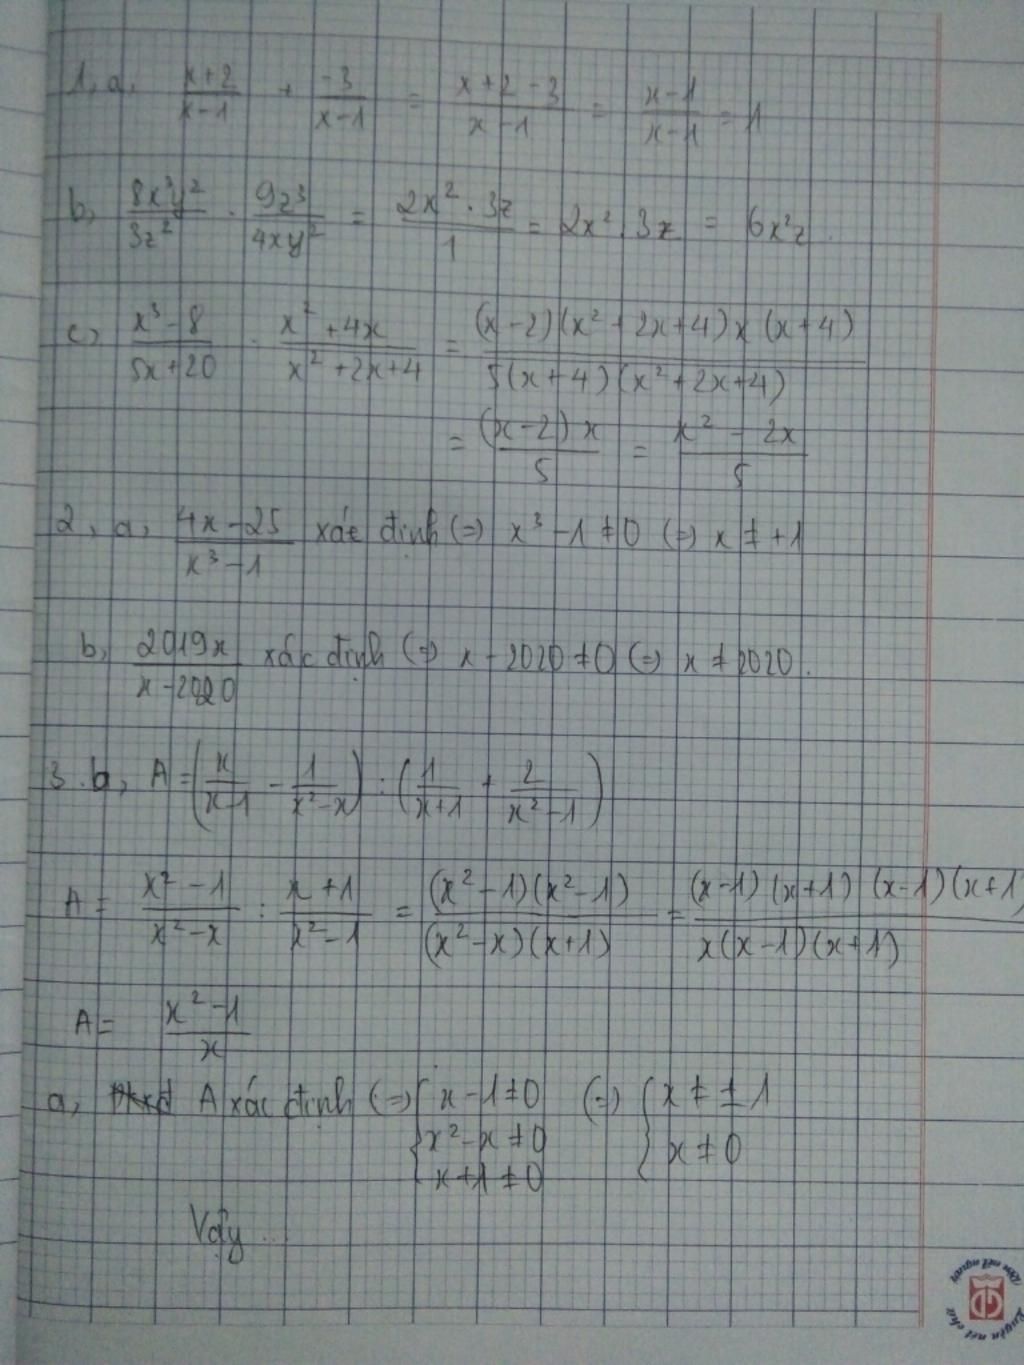 1, a, (x+2)/(x-1) + (-3)/(x-1) = (x+2-3)/(x-1) = (x-1)/(x-1) = 1
b, (8x³y²)/(3z²) . (9z³)/(4xy²) = (2x² . 3z)/1 = 2x² . 3z = 6x²z.
c, (x³-8)/(5x+20) . (x²+4x)/(x²+2x+4) = ((x-2)(x²+2x+4)x(x+4))/(5(x+4)(x²+2x+4))
= ((x-2)x)/5 = (x²-2x)/5
2, a, (4x-25)/(x³-1) xác định (=) x³-1≠0 (=) x ≠ +1
b, (2019x)/(x-2020) xác định (=) x-2020≠0 (=) x≠2020.
3.b, A = (x/(x-1) - 1/(x²-x)) : (1/(x+1) + 2/(x²-1))
A = (x²-1)/(x²-x) : (x+1)/(x²-1) = ((x²-1)(x²-1))/((x²-x)(x+1)) = ((x-1)(x+1)(x-1)(x+1))/(x(x-1)(x+1))
A = (x²-1)/x
a, A xác định (=) { x-1≠0 (=) { x≠±1
x²-x≠0 x≠0
x+1≠0
Vậy ...
Luyện nét chữ
Rèn nết người
GD